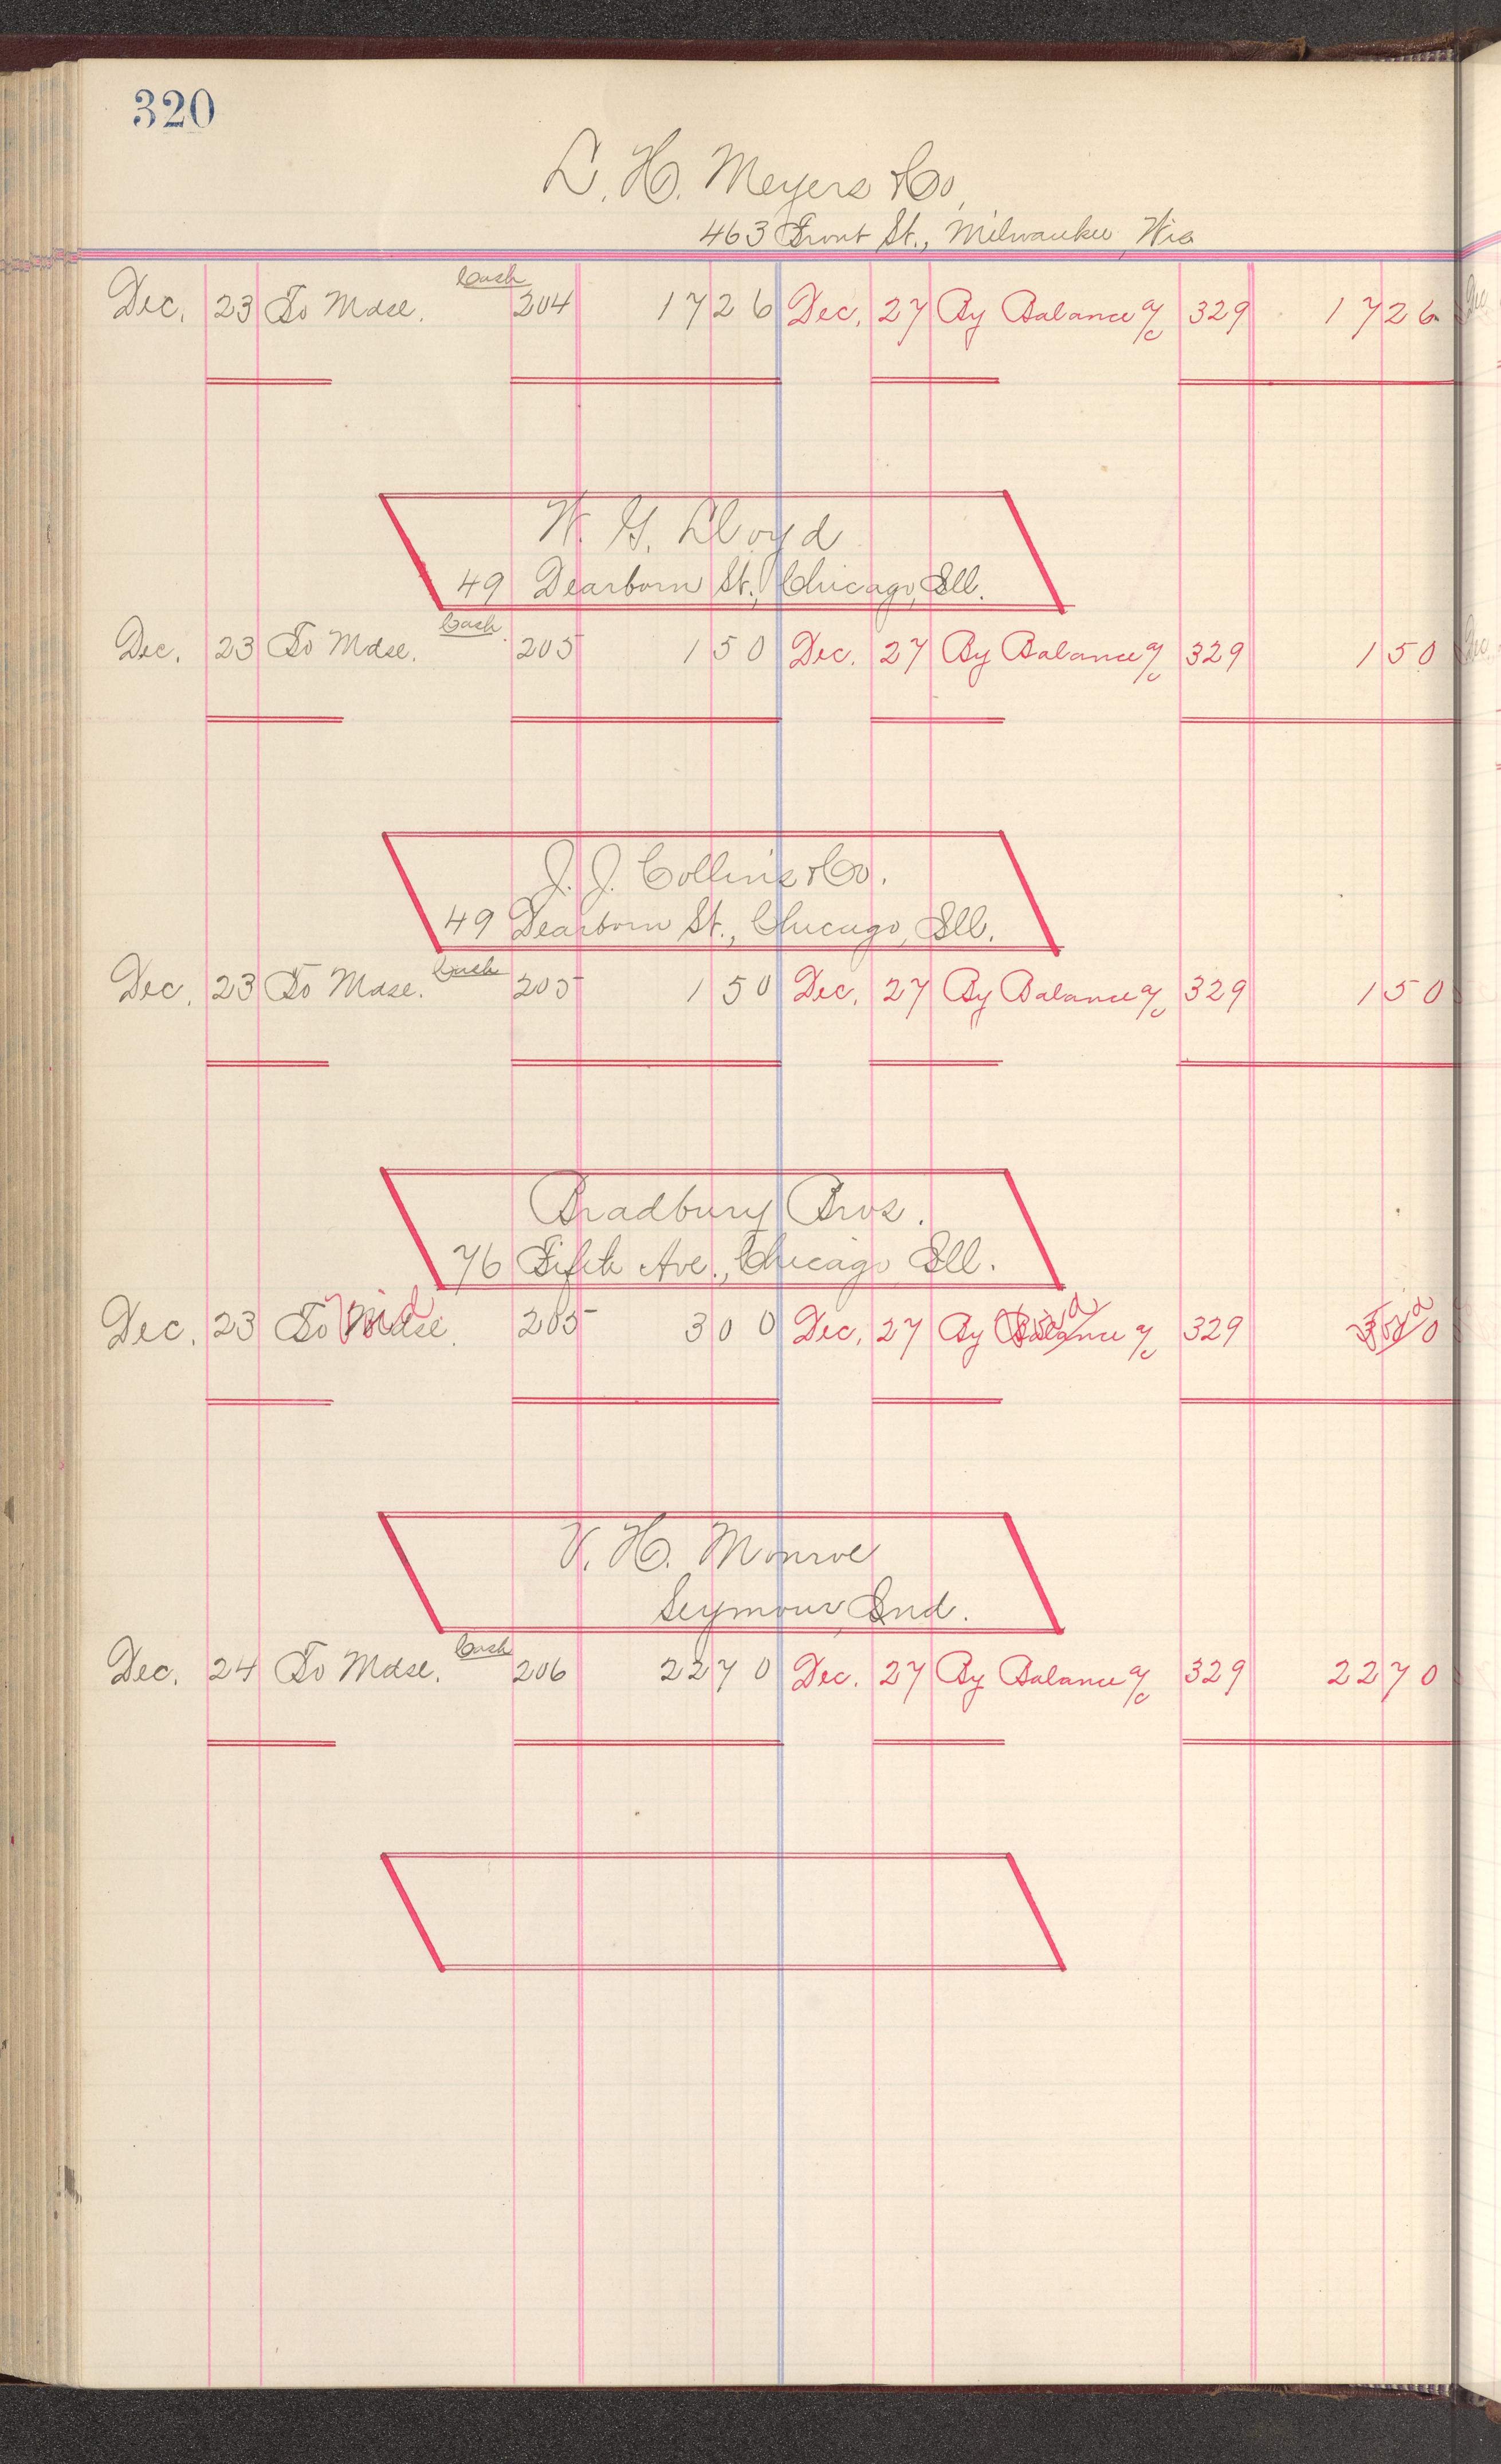 320
L. H. Meyers & Co.
463 Front St., Milwaukee, Wis
Cash
Dec. 23 To Mdse. 204 17 26 Dec. 27 By Balance a/c 329 17 26
W. G. Lloyd
49 Dearborn St., Chicago, Ill.
Cash
Dec. 23 To Mdse. 205 1 50 Dec. 27 By Balance a/c 329 1 50
J. J. Collins & Co.
49 Dearborn St., Chicago, Ill.
Cash
Dec. 23 To Mdse. 205 1 50 Dec. 27 By Balance a/c 329 1 50
Bradbury Bros.
76 Fifth Ave., Chicago Ill.
Void Void Void
Dec. 23 To Mdse. 205 3 00 Dec. 27 By Balance a/c 329 3 00
V. H. Monroe
Seymour, Ind.
Cash
Dec. 24 To Mdse. 206 22 70 Dec. 27 By Balance a/c 329 22 70